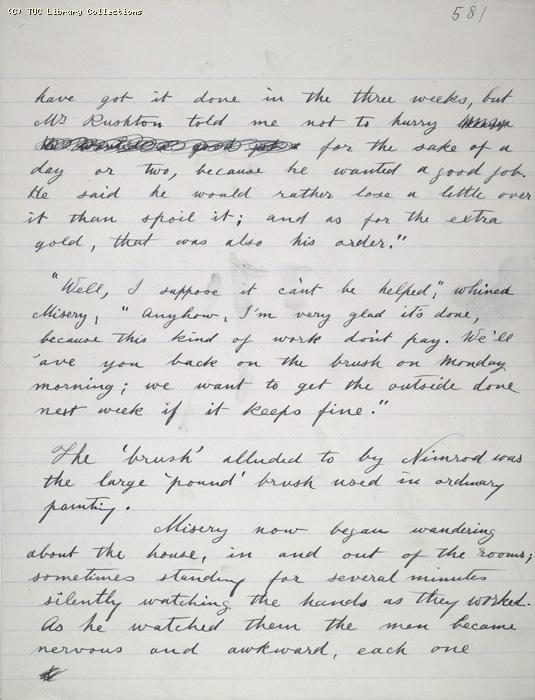 (C) TUC Library Collections
581
have got it done in the three weeks, but
Mr Rushton told me not to hurry
for the sake of a
day or two, because he wanted a good job.
He said he would rather lose a little over
it than spoil it; and as for the extra
gold, that was also his order."
"Well, I suppose it cant be helped", whined
Misery, "Anyhow, I'm very glad its done,
because this kind of work dont pay. We'll
'ave you back on the brush on Monday
morning; we want to get the outside done
next week if it keeps fine."
The 'brush' alluded to by Nimrod was
the large 'pound' brush used in ordinary
painting.
Misery now began wandering
about the house, in and out of the rooms;
sometimes standing for several minutes
silently watching the hands as they worked.
As he watched them the men became
nervous and awkward, each one